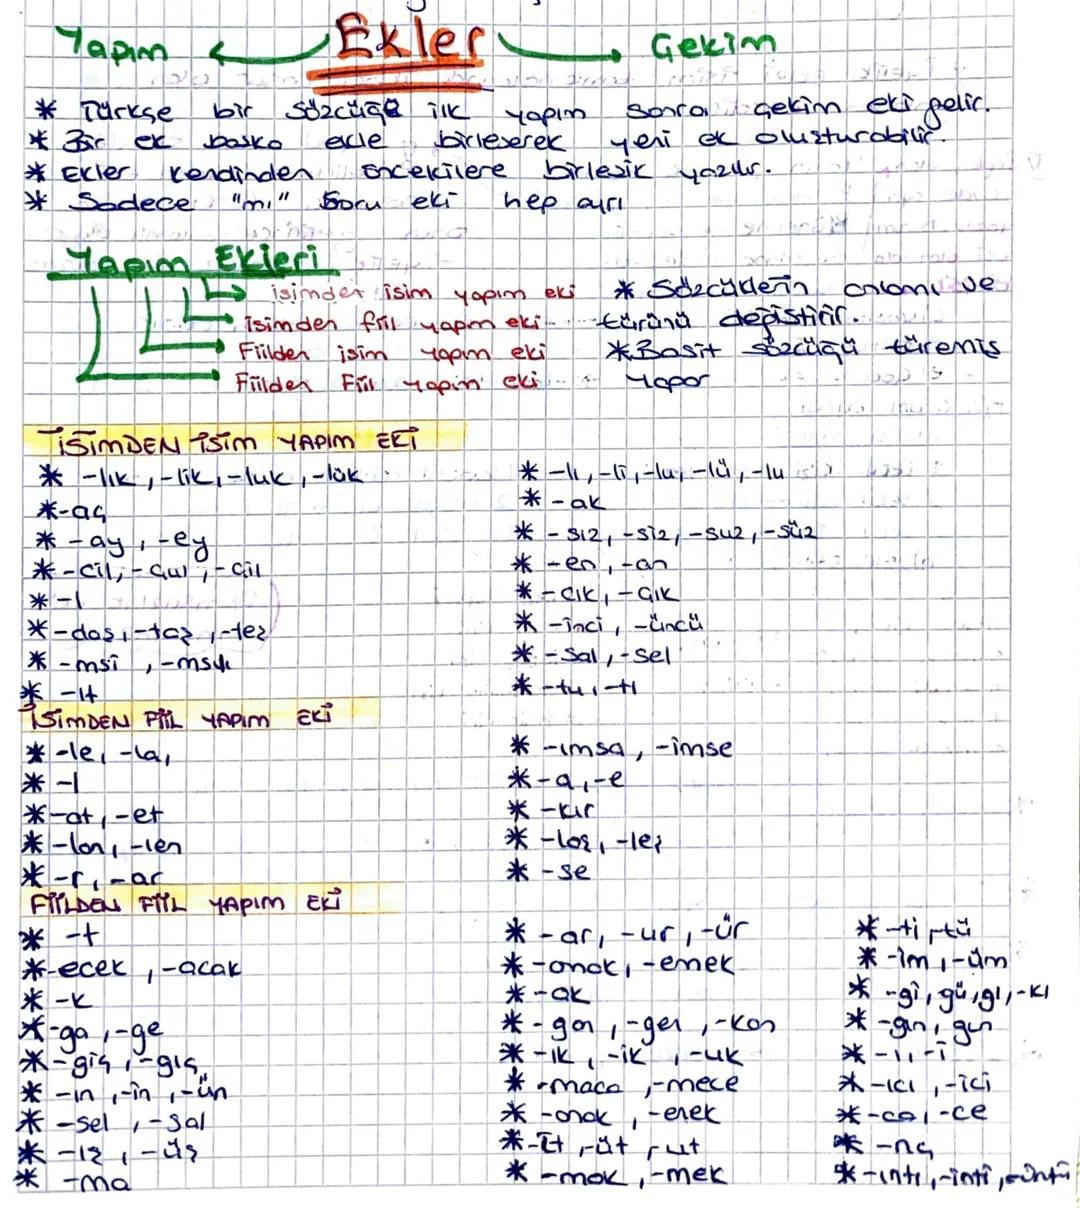 Yapım Ekler Çekim
* Türkçe bir sözcüğe ilk yapım sonra çekim eki gelir.
* Bir ek başka ekle birleşerek yeni ek oluşturabilir.
* Ekler kendinden öncekilere birleşik yazılır.
* Sadece "mı" soru eki hep ayrı
Yapım Ekleri
isimden isim yapım eki
isimden fiil yapım eki
Fiilden isim yapım eki
Fiilden Fiil yapım eki
* Sözcüklerin anlamı ve
türünü değiştirir.
* Basit sözcüğü türemiş
yapar
İSİMDEN İSİM YAPIM EKİ
* -lık, -lik, -luk, -lük
* -aç
* -ay, -ey
* -cil, -çul, -çil
* -l
* -daş, -taş, -teş
* -msi, -msı
* -lt
* -lı, -li, -lu, -lü, -lu
* -ak
* -sız, -siz, -suz, -süz
* -en, -an
* -cık, -çık
* -inci, -üncü
* -sal, -sel
* -tu, -tı
İSİMDEN FİİL YAPIM EKİ
* -le, -la,
* -l
* -at, -et
* -lan, -len
* -r, -ar
* -ımsa, -imse
* -a, -e
* -kır
* -laş, -leş
* -se
FİİLDEN FİİL YAPIM EKİ
* -t
* -ecek, -acak
* -k
* -ga, -ge
* -giç, -gıç
* -ın, -in, -ün
* -sel, -sal
* -ış, -üş
* -ma
* -ar, -ur, -ür
* -anak, -emek
* -ak
* -gan, -gen, -kan
* -ık, -ik, -uk
* -maca, -mece
* -anak, -enek
* -it, -üt, -ut
* -mak, -mek
* -ti, -tü
* -im, -üm
* -gi, gü, gı, -kı
* -gın, gun
* -ı, -i
* -ıcı, -ici
* -ca, -ce
* -nç
* -ıntı, -inti, -üntü